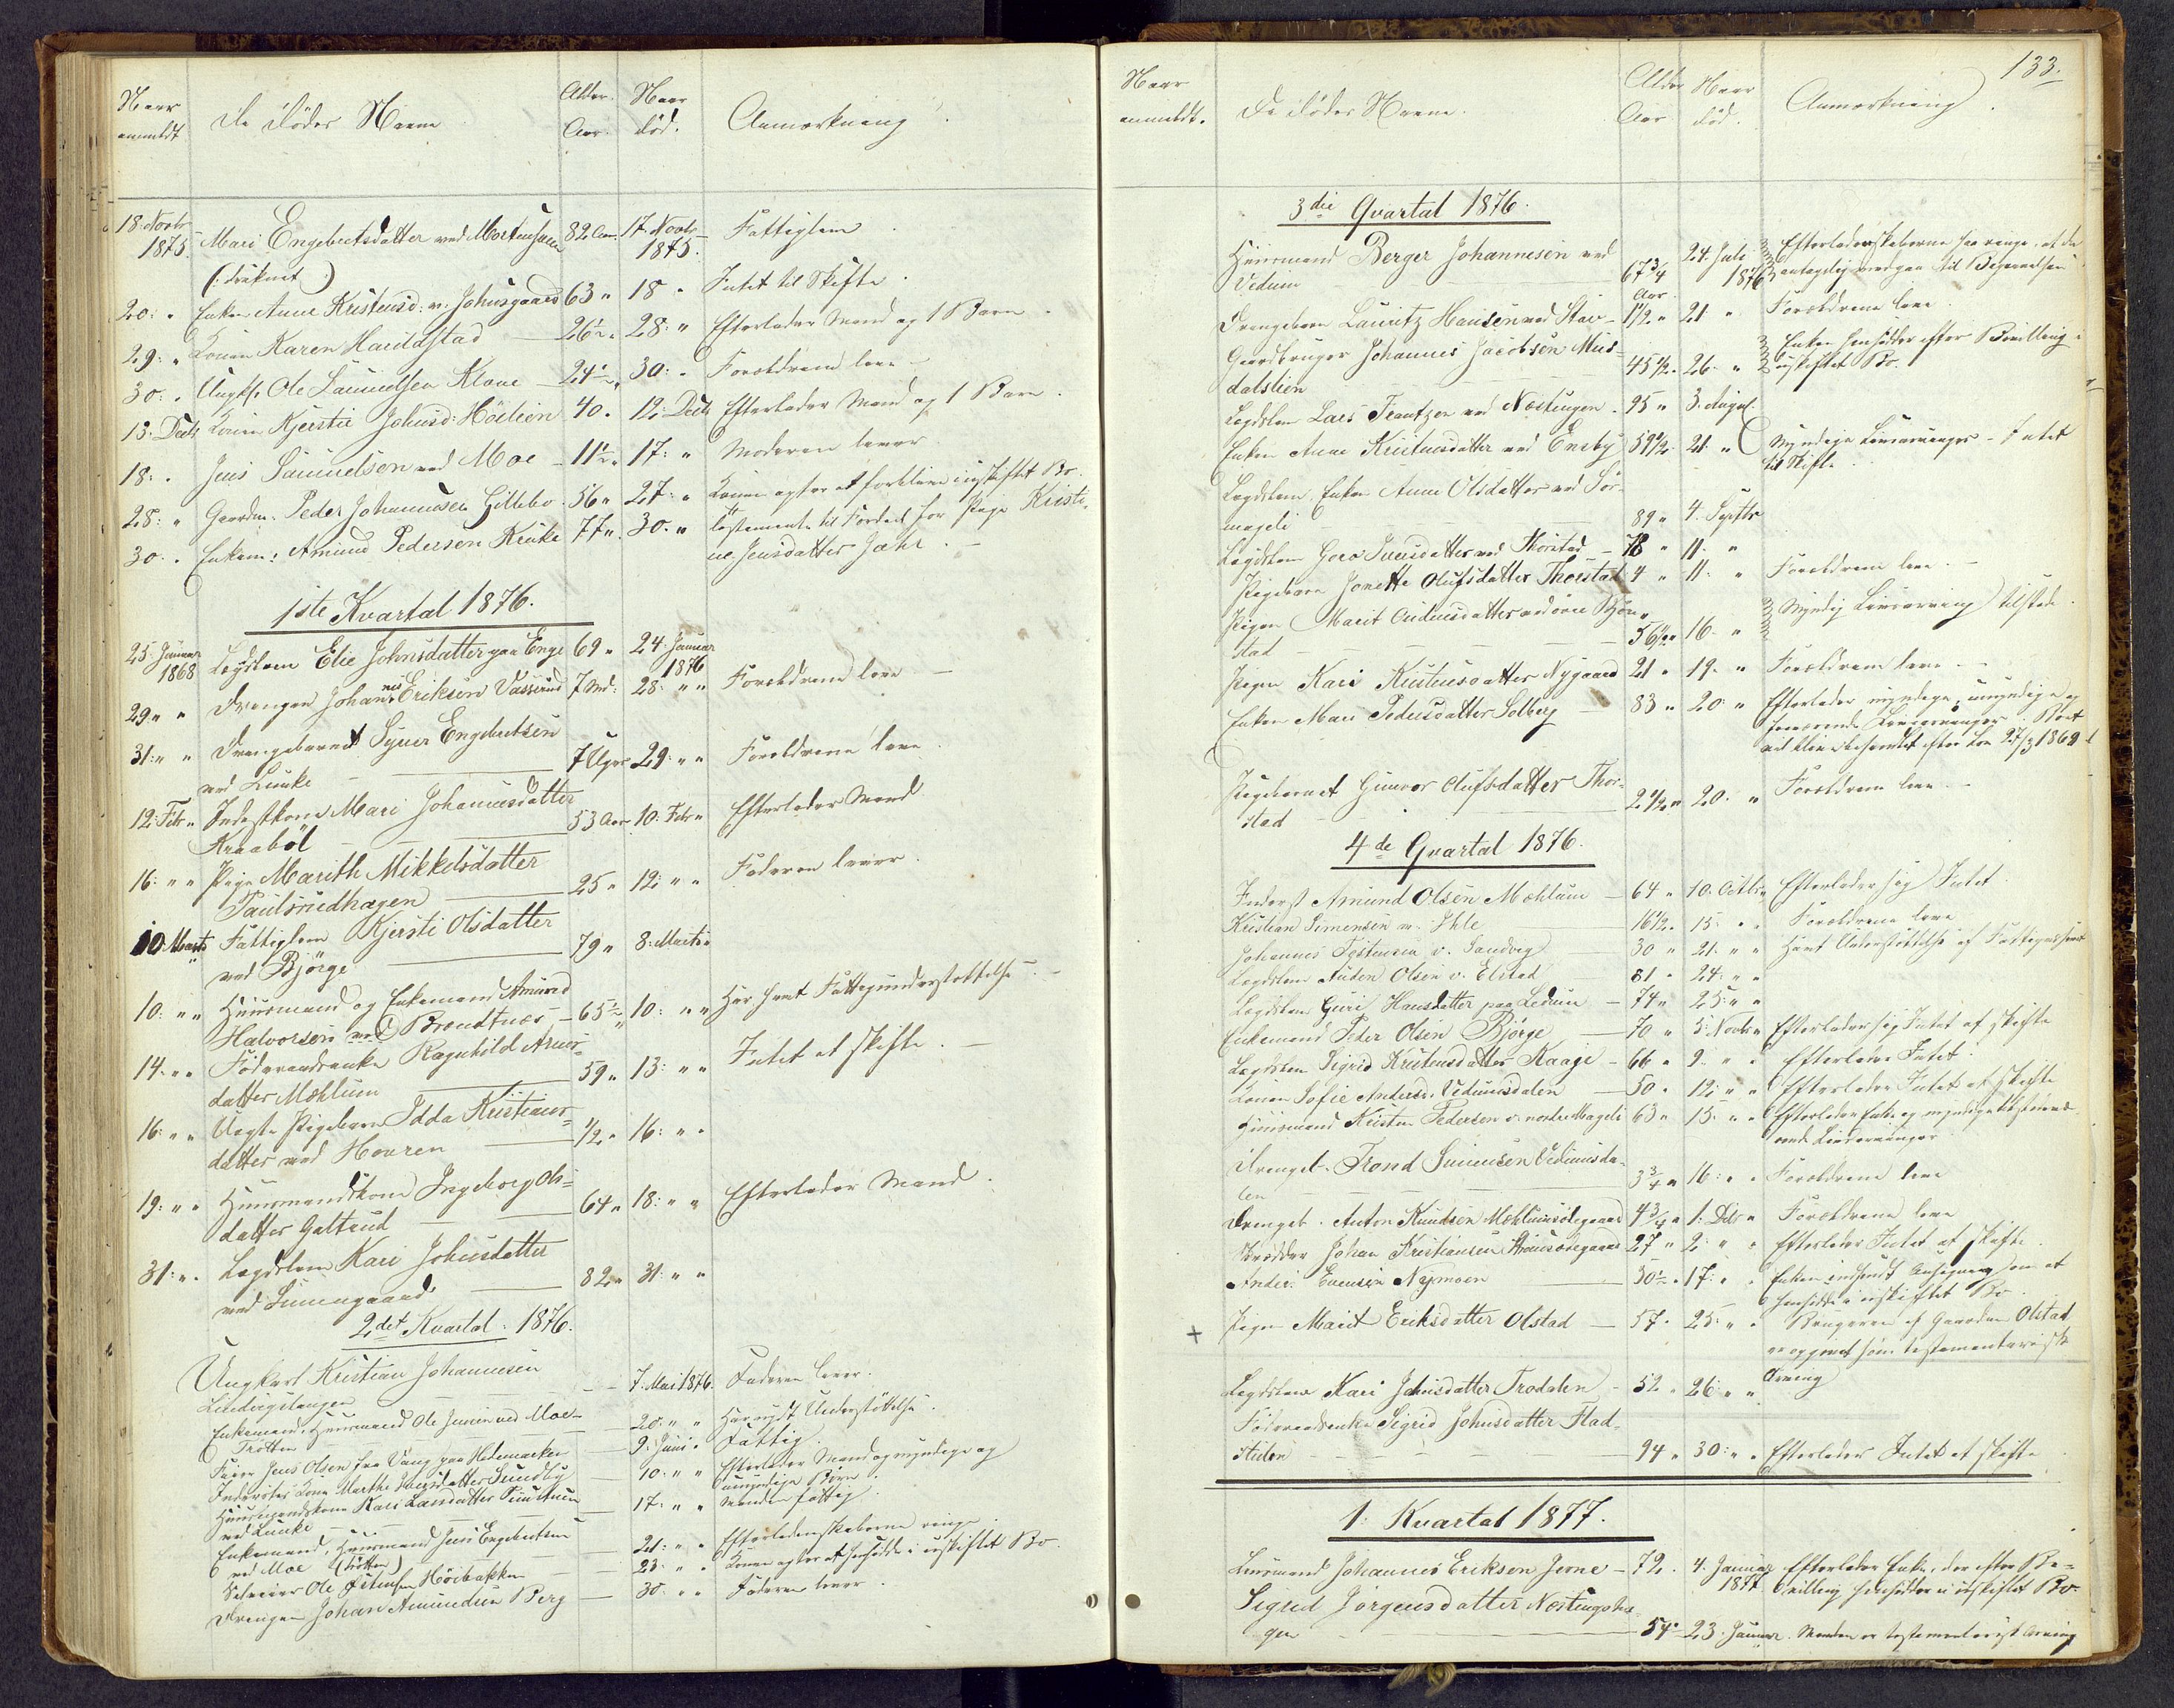 Naar anmeldt
De Dødes Navne
Alder. Aar.
Naar død.
Anmærkning
18. Novbr 1875. Mari Engebretsdatter ved Mortenhuus 82 Aar. 17. Novbr 1875. Fattiglem
(: druknet)
20: " Enken Anne Kristensd: v. Johnsgaard 63 " 18 " Intet til Skifte.
29: " Konen Karen Haraldstad 26½ " 28: " Efterlader Mand og 1 Barn
30: " Ungk. Ole Samuelsen Klove 24½ " 30: " Forældrene leve
13. Decb Konen Kjersti Johnsd: Hölien 40. 12: Decb Efterlader Mand og 1 Barn.
18: " Jens Samuelsen ved Moe 11½ " 17: " Moderen lever
28: " Gaardm. Peder Johannesen Gillebo 56 " 27: " Konen agter at forblive i uskiftet Bo.
30. " Enkem: Amund Pedersen Kruke 77 " 30. " Testamente til Fordel for Pige Kristi-
ne Jensdatter Jahr.
1ste Kvartal 1876.
25. Januar 1868 Legdslem Elie Johnsdatter paa Enge 69 " 24. Januar 1876
29 " " Drengen Johannes Eriksen Vasrud 7 Md: 28: " " Forældrene leve
31: " " Drengebarnet Syver Engebretsen
ved Kruke 7 Uger 29: " " Forældrene leve.
12: Febr " Inderstkone Mari Johannesdatter
Kraaböl 53 Aar 10: Febr " Efterlader Mand
16: " " Pige Marith Mikkelsdatter
Paulsrudhagen 25 " 12: " " Faderen lever.
10 Marts Fattiglem Kjersti Olsdatter
ved Bjørge 79 " 8: Marts "
10: " " Huusmand og Enkemand Amund
Halvorsen ved Brandtnæs 65½ " 10: " " Har havt Fattigunderstøttelse.
14. " " Föderaadsenke Ragnhild Arnes-
datter Mæhlum 59 " 13: " " Intet at skifte.
16: " " Uægte Pigebarn Idda Kristians-
datter ved Hovren ½ " 16: " "
19: " " Huusmandskone Ingeborg Ols-
datter Galterud 64 " 18: " " Efterlader Mand.
31: " " Lægdslem Kari Johnsdatter
ved Simengaard 82 " 31: " "
2det Kvartal 1876.
Ungkarl Kristian Johannesen
7. Mai 1876. Faderen lever.
Enkemand, Huusmand Ole Jensen ved Moe 20: " " Har nydt Understöttelse.
Trötten
Jens Olsen fra Vang paa Hedemarken 9: Juni " Fattig.
Inderstes Kone Marthe Hansdatter Sundby 10: " " Efterlader Mand og myndige og
umyndige Børn.
Huusmandskone Kari Larsdatter 17: " " Manden fattig.
ved Kruke
Enkemand, Huusmand Jens Engebretsen
ved Moe (Trötten) 21: " " Efterladenskaberne ringe.
Ole Höibakken 23: " " Konen agter at hensidde i uskiftet Bo.
Drengen Johan Amundsen Berg 30: " " Faderen lever.
133.
Naar anmeldt.
De Dødes Navne.
Alder Aar
Naar død.
Anmærkning.
3die Qvartal 1876.
Huusmand Berger Johannesen ved
Vedum 67¾ Aar 24. Juli 1876 Efterladenskaberne saa ringe, at de
antagelig medgaa til Begravelsen
Drengebarn Lauritz Hansen ved Stav 1½ " 21 " Forældrene leve.
Gaardbruger Johannes Jacobsen Mus-
dalslien 45½ " 26. " Enken hensidder efter Bevilling i
uskiftet Bo.
Lægdslem Lars Frantzen ved Nøstingen. 95 " 3. August.
Enken Anne Kristensdatter ved Ensby 59½ 21 " Myndige Livsarvinger - Intet
til Skifte.
Lægdslem Enken Anne Olsdatter ved Sør-
mageli 89 " 4. Septbr
Lægdslem Goro Iversdatter ved Thorstad 78 " 11. "
Pigebarn Jonette Olufsdatter Thorstad 4 " 11: " Forældrene leve.
Pigen Marit Audensdatter ved övre Bjön-
stad 56½ " 16. " Myndig Livsarving tilstede.
Pigen Kari Kristensdatter Nygaard 21 " 19. " Forældrene leve
Enken Mari Pedersdatter Solberg 83 " 20. " Efterlader myndige, umyndige og
fraværende Livsarvinger. Boet
vil blive behandlet efter Lov 27/3 1869
Pigebarnet Gunvor Olufsdatter Thor-
stad 2½ " 20. " Forældrene leve
4de Qvartal 1876.
Inderst Amund Olsen Mæhlum 64 " 10. Octbr " Efterlader sig Intet.
Kristian Simensen v. Ihle 16½ " 15 " " Forældrene leve
Johannes Tostensen v. Sandvig 30 " 21: " " Havt Understøttelse af Fattigvæsenet
Lægdslem Auden Olsen v. Elstad 81 " 24: " "
Lægdslem Guri Hansdatter paa Ledum 74 " 25: " "
Enkemand Peder Olsen Bjørge 70 " 5: Novbr " Efterlader sig Intet at skifte
Lægdslem Sigrid Kristensdatter Kaage 66 " 9. " " Efterlader Intet.
Konen Sofie Andersd. Vedumsdalen 50 " 12: " " Efterlader Intet at skifte
Huusmand Kristen Pedersen v. nordre Mageli 63 " 13: " " Efterlader Enke og myndige tilstedeværende Livsarvinger
Drengeb. Trond Simensen Vedumsda-
len 3¾ " 16: " " Forældrene leve
Drengeb. Anton Knudsen Mæhlumsödegaard 4¾ " 1. Decb " Forældrene leve
Skrædder Johan Kristiansen 27 " 2 " " Efterlader Intet at skifte
Anders Evensen Nymoen 30½ " 17: " " Enken indsendt Ansøgning om at
hensidde i uskiftet Bo.
+ Pigen Marit Eriksdatter Olstad 57 " 25: " " Brugeren af Gaarden Olstad
er opgivet som testamentarisk
Arving
Lægdslem Kari Johnsdatter Trodalen 52 " 26: " "
Föderaadsenke Sigrid Johnsdatter Flad-
stulen 94 " 30: " " Efterlader Intet at skifte
1. Kvartal 1877.
Huusmand Johannes Eriksen Jerne 72. 4. Januar 1877 Efterlader Enke, der efter Be-
villing hensidder i uskiftet Bo.
Sigrid Jörgensdatter Nøstingsha-
gen 54 " 23. Januar. Manden er testamentarisk Arving